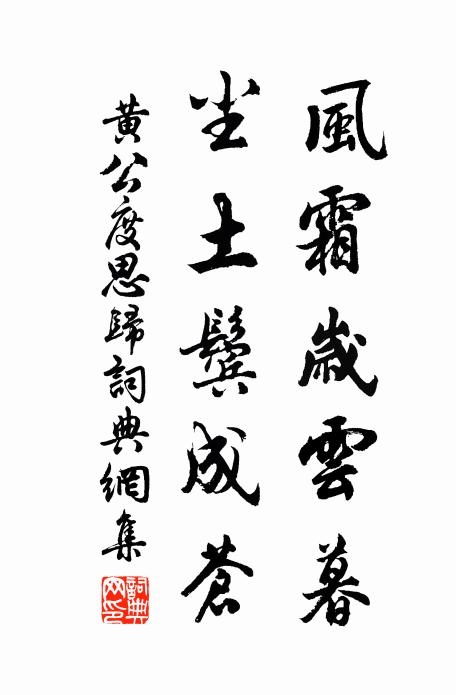 風霜歲雲暮
尘土鬢成蒼
黃公度思歸詞典網集
詞典網印